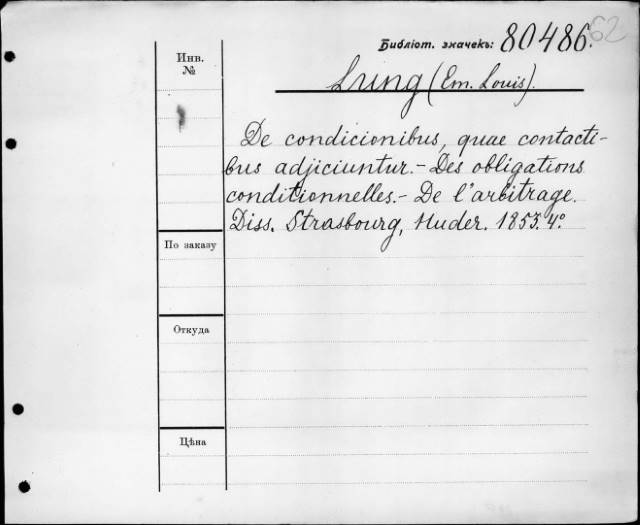 Библіот. значекъ: 80486. 62
Инв.
№
Lung (Em. Louis).
De condicionibus, quae contacti-
bus adjiciuntur. - Des obligations
conditionnelles. - De l'arbitrage.
Diss. Strasbourg, Huder. 1853. 4º.
По заказу
Откуда
Цѣна